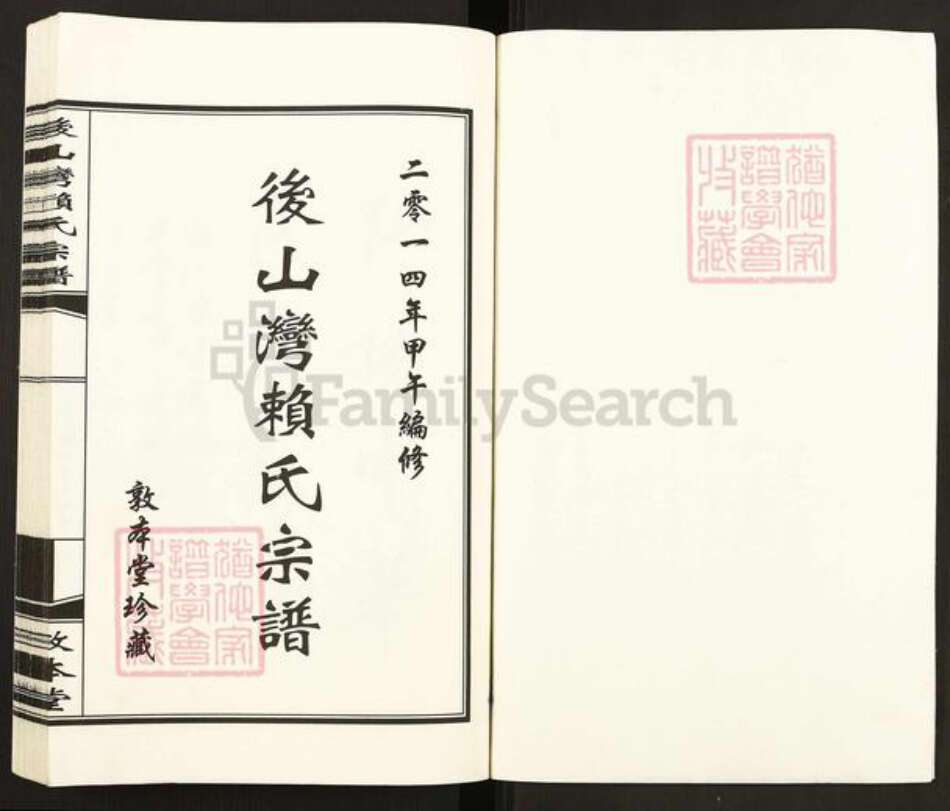 二零一四年甲午編修
後山灣賴氏宗譜
敦本堂珍藏
後山灣賴氏宗譜
敦本堂
猶他家
譜學會
收藏
猶他家
譜學會
收藏
FamilySearch